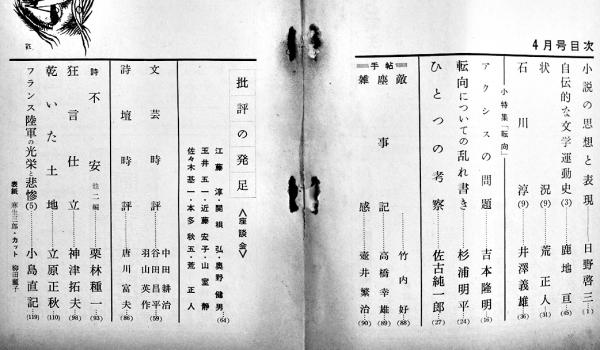 4月号目次
小説の思想と表現 日野啓三…(1)
自伝的な文学運動史(3) 鹿地亘…(45)
状況(9) 荒正人…(31)
石川淳(9) 井澤義雄…(36)
小特集「転向」
アクシスの問題 吉本隆明…(16)
転向についての乱れ書き 杉浦明平…(24)
ひとつの考察 佐古純一郎…(27)
手帖
敵 竹内好…(88)
塵事記 高橋幸雄…(89)
雑感 壷井繁治…(90)
批評の発足 〈座談会〉
江藤淳・開根弘・奥野健男
玉井五一・近藤宏子・山室静
佐々木基一・本多秋五・荒正人 (64)
文芸時評 中田耕治
谷田昌平…(59)
羽山英作
詩壇時評 唐川富夫…(86)
詩 不安 他二編 栗林種一…(93)
狂言仕立 神津拓夫…(98)
乾いた土地 立原正秋…(110)
フランス陸軍の光栄と悲惨(5) 小島直記…(119)
表紙 麻生三郎・カット 柳田麗子